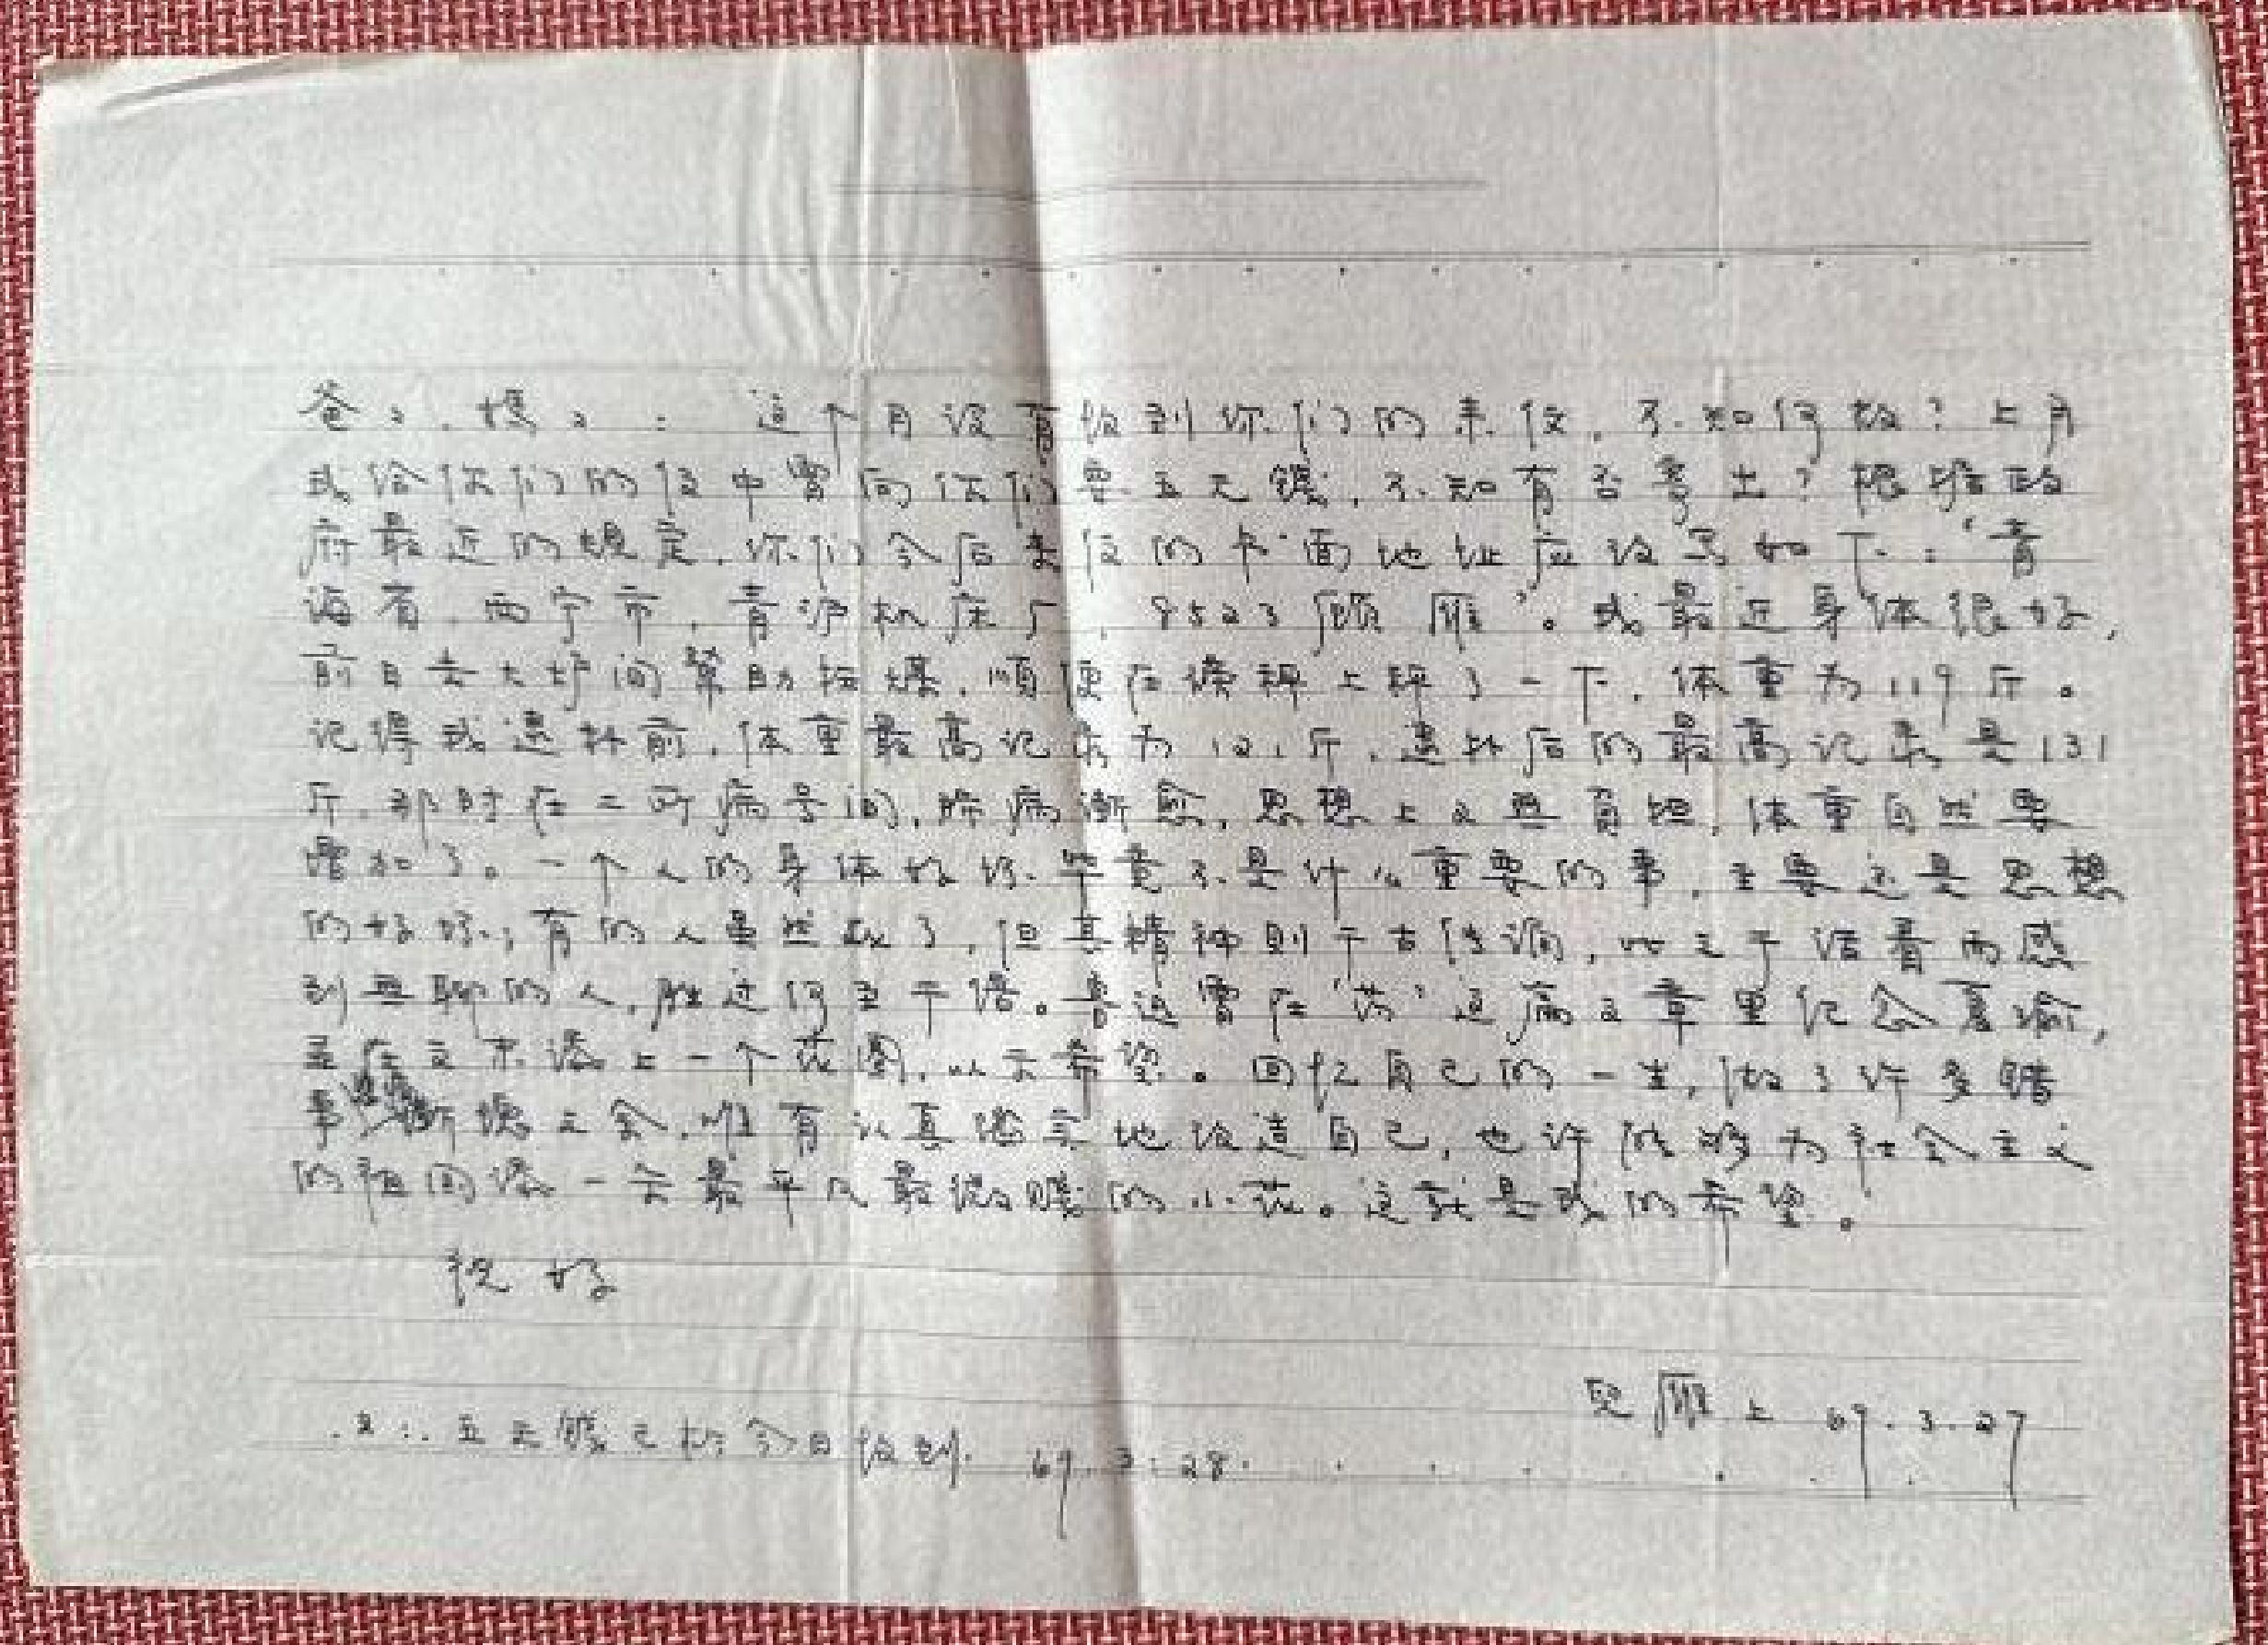 爸々、媽々： 这个月没有收到你们的来信，不知何故？上月
我给你们的信中曾向你们要五元錢，不知有否寄出？根据政
府最近的规定，你们今后来信的书面地址应该写如下：“青
海省，西宁市，青沪机床厂，9523 顾雁”。我最近身体很好，
前日去大炉间帮助抬煤，顺便在磅秤上秤了一下，体重为119斤。
记得我逮捕前，体重最高记录为121斤，逮捕后的最高记录是131
斤，那时在二所病号间，肺病渐愈，思想上又无負担，体重自然要
增加了。一个人的身体好坏毕竟不是什么重要的事，主要还是思想
的好坏；有的人虽然死了，但其精神则千古传诵，比之于活着而感
到无聊的人，胜过何至千倍。鲁迅曾在‘药’这篇文章里纪念夏瑜，
并在文末添上一个花圈，以示希望。回忆自己的一生，做了许多错
事，惭愧之余，唯有认真踏实地改造自己，也许能够为社会主义
的祖国添一朵最平凡最微賤的小花。这就是我的希望。
祝好
兒雁上 69.3.27
又：五元錢已於今日收到. 69.3.28.